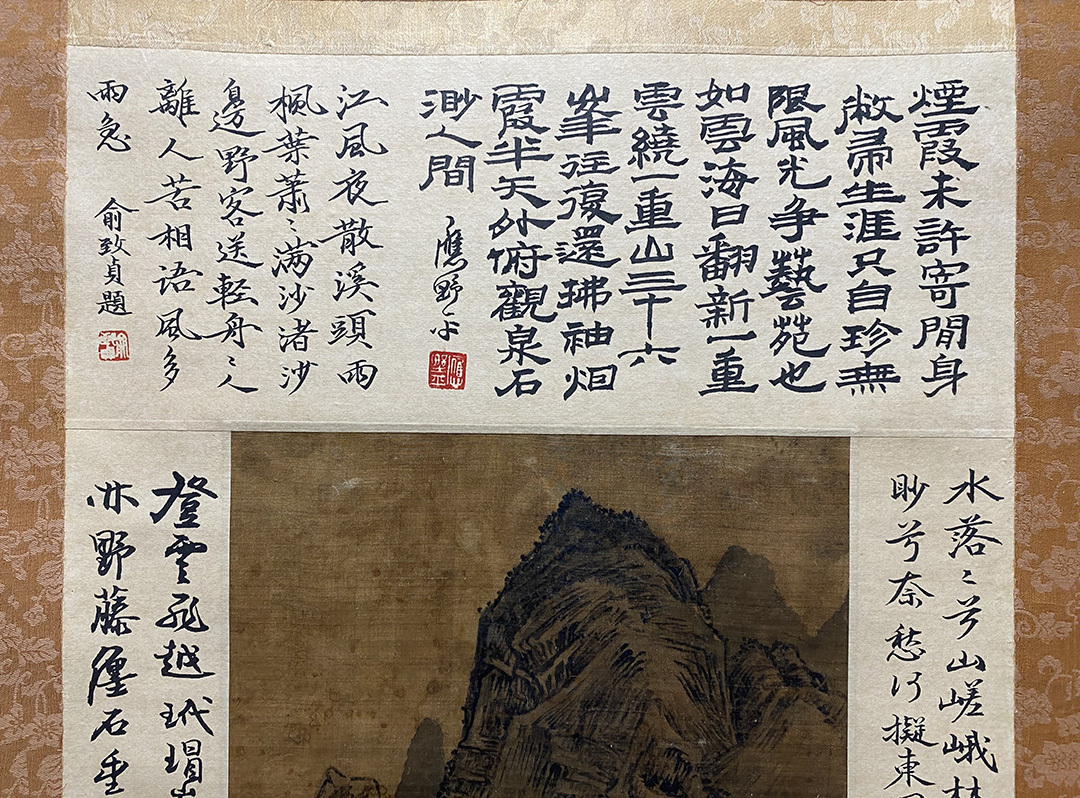 煙霞未許寄閒身
敝帚生涯只自珍無
限風光争藝苑也
如雲海日翻新一重
雲繞一重山三十六
峯往復還拂袖烟
霞半天外俯觀泉石
渺人間
應野平
應野平
江風夜散溪頭雨
楓葉蕭〻滿沙渚沙
邊野客送軽舟〻人
離人苦相語風多
雨急
俞致貞題
水落〻兮山嵯峨
眇兮奈愁何擬東
登雲飛越玳瑁
亦野藤纏石垂